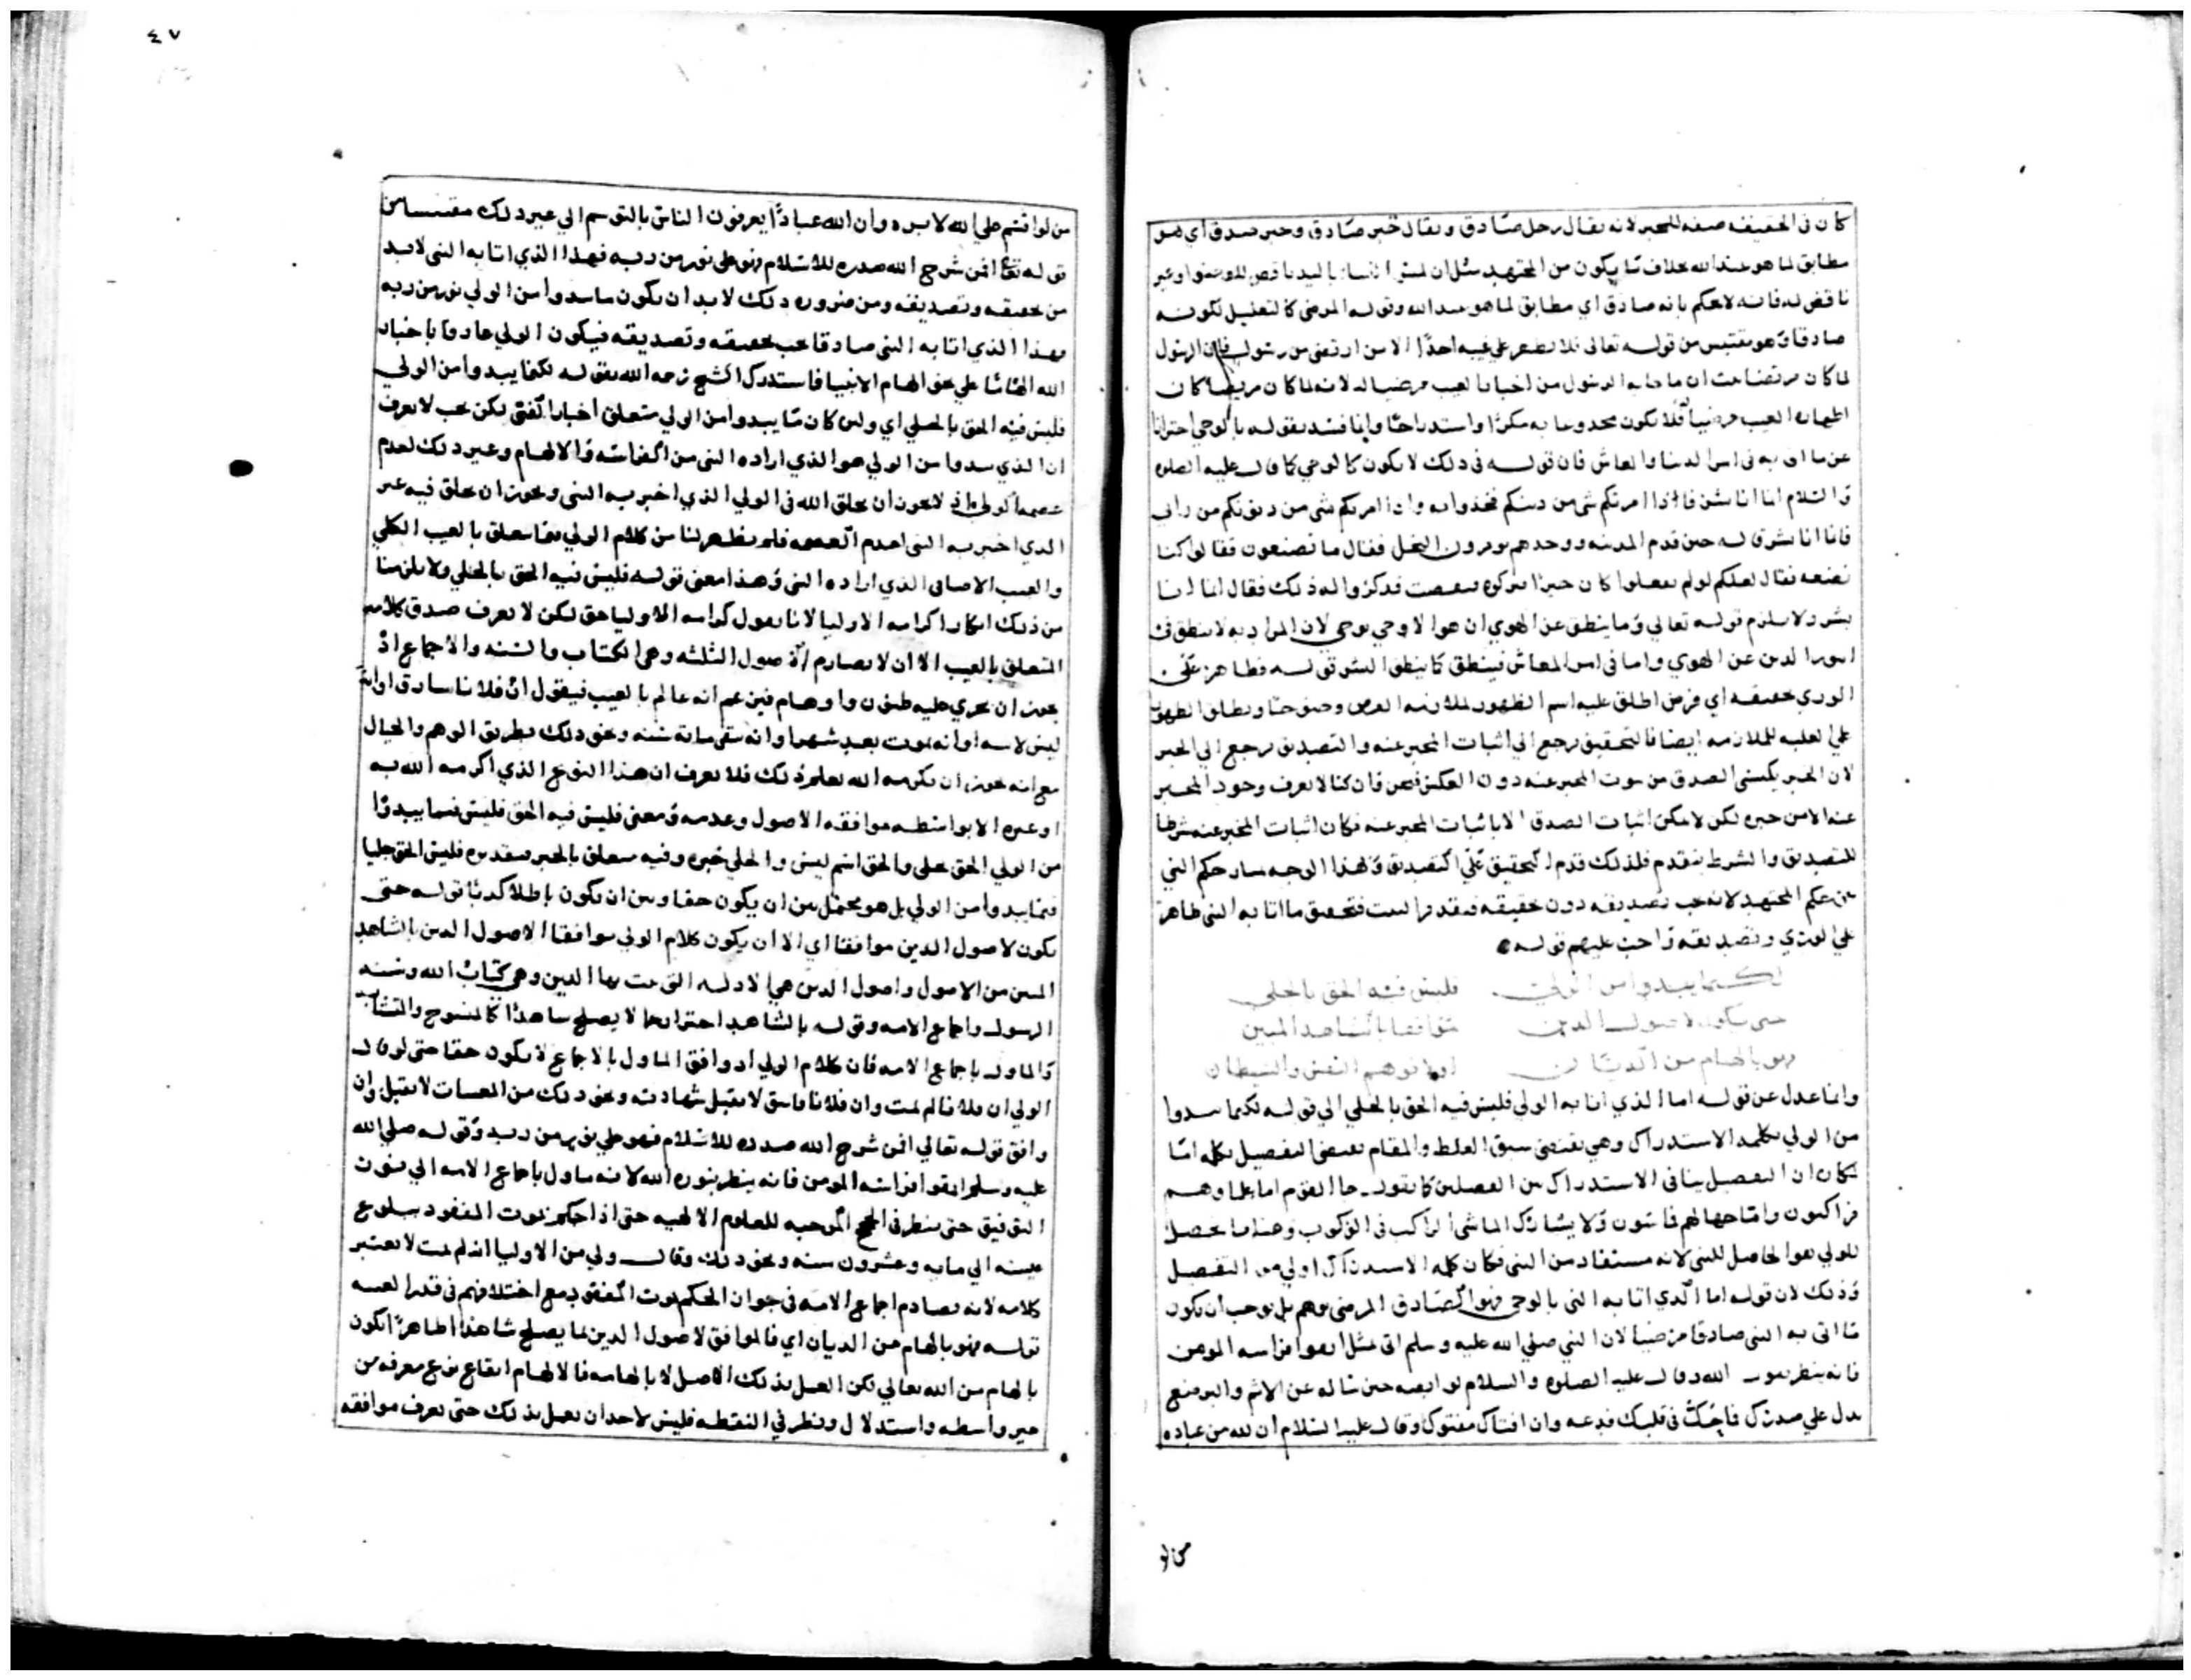 كان في الحقيقه صفه للمخبر لانه يقال رجل صادق ويقال خبر صادق وخبر صدق اي هو
مطابق لما هو عند الله بخلاف ما يكون من المجتهد مثل ان لمس النساء باليد ناقض للوضوء او غير
ناقض له فانه لا يحكم بانه صادق اي مطابق لما هو عند الله وقوله المرضي كالتعليل لكونه
صادقا وهو مقتبس من قوله تعالى فلا يظهر على غيبه احدا الا من ارتضى من رسول فان الرسول
لما كان مرتضا ما جا به الرسول من اخبار الغيب مرضيا له لانه لما كان مرتضا كان
اظهاره الغيب مرضيا فلا يكون مكرا واستدراجا وانما قيد بقوله بالوحي احترازا
عن ما اتى به في امر الدنيا والمعاش فان قوله في ذلك لا يكون كالوحي كما قال عليه الصلوه
والسلام انما انا بشر فاذا امرتكم بشي من دينكم فخذوا به واذا امرتكم بشي من دنياكم من راي
فانما انا بشر قاله حين قدم المدينه ووجدهم يوبرون النخل فقال ما تصنعون فقالوا كنا
نصنعه فقال لعلكم لو لم تفعلوا كان خيرا فتركوه فنقصت فذكروا له ذلك فقال انما انا
بشر ولا يلزم قوله تعالي وما ينطق عن الهوي ان هو الا وحي يوحى لان المراد به لا ينطق في
امور الدين عن الهوي واما في امر المعاش فينطق كما ينطق البشر قوله فظاهر على
الوري حقيقه اي فرض اطلق عليه اسم الظهور لملازمه
على الغلبه للملازمه ايضا فالتحقيق يرجع الى اثبات المخبر عنه والتصديق يرجع الى الخبر
لان الخبر يكتسي الصدق من ثبوت المخبر عنه دون العكس فنحن وان كنا لا نعرف وجود المخبر
عنه الا من خبره لكن لا يمكن اثبات الصدق الا باثبات المخبر عنه فكان اثبات المخبر عنه شرطا
للتصديق والشرط يتقدم فلذلك قدم التحقيق على التصديق ولهذا الوجه حكم النبي
عن حكم المجتهد لانه يجب تصديقه دون حقيقه فتقدير البيت فتحقيق ما اتا به النبي ظاهر
علي الوري وتصديقه واجب عليهم قوله
لكنما يبدو من الولي فليس فيه الحق بالجلي
حتى يكون لاصول الدين موافقا بالشاهد المبين
فهو بالهام من الديان او لا توهم النفس والشيطان
وانما عدل عن قوله اما الذي اتا به الولي فليس فيه الحق بالجلي الي قوله لكنما يبدوا
من الولي بكلمه الاستدراك وهي تقتضي سبق الغلط والمقام يقتضي التفصيل بكلمه اما
لمكان ان التفصيل ينافي الاستدراك بين الفصلين كما يقول جا القوم اما علماوهم
فراكبون واما جهالهم فماشون ولا يشارك الماشي الراكب في الركوب وهنا ما يحصل
للولي هو الحاصل للنبي لانه مستفاد من النبي فكان كلمه الاستدراك اولى من التفصيل
وذلك لان قوله اما الذي اتا به النبي بالوحي فهو الصادق المرضي يوهم بل يوجب ان يكون
ما اتى به النبي صادقا مرضيا لان النبي صلي الله عليه وسلم اتى بمثل اتقوا فراسه المومن
فانه ينظر بنور الله وقال عليه الصلوه والسلام لوابصه حين ساله عن الاثم والبر ضع
يدك على صدرك فما حك في قلبك فدعه وان افتاك مفتوك وقال عليه السلام ان لله من عباده
من لو
٤٧
من لو اقسم على الله لابره وان لله عبادا يعرفون الناس بالتوسم الي غير ذلك مقتبسا من
قوله تعالى افمن شرح الله صدره للاسلام فهو على نور من ربه فهذا الذي اتا به النبي لا بد
من تحقيقه وتصديقه ومن ضروره ذلك لا بد ان يكون ما يبدوا من الولي نور من ربه
بهذا الذي اتا به النبي صادقا يجب تحقيقه وتصديقه فيكون الولي صادقا باخبار
الله على نحو الهام الانبيا فاستدرك الشيخ رحمه الله بقوله لكنما يبدوا من الولي
فليس فيه الحق بالجلي اي وليس كان ما يبدوا من الولي متعلق اخبار النبي لكن بحيث لا يعرف
ان الذي يبدوا من الولي هو الذي اراده النبي من الفراسه والالهام وغير ذلك لعدم
عصمه الولي اذ لا يجوز ان يخلق الله في الولي الذي اخبر به النبي ويجوز ان يخلق فيه غير
الذي اخبر به النبي لعدم العصمه فلم يظهر لنا من كلام الولي بما يتعلق بالغيب الكلي
والغيب الاضافي الذي اراده النبي وهذا معنى قوله فليس فيه الحق بالجلي ولا يلزمنا
من ذلك انكار كرامه الاوليا لانا نقول كرامه الاوليا حق لكن لا نعرف صدق كلامه
المتعلق بالغيب الا ان لا يصادم الاصول الثلثه وهي الكتاب والسنه والاجماع اذ
يجوز ان يجري عليه ظنون واوهام فيزعم انه عالم بالغيب فيقول ان فلانا سارق او انه
ليس لابيه او انه يموت بعد شهر او انه يبقى مائة سنه ونحو ذلك بطريق الوهم والخيال
مع انه يجوز ان يكرمه الله بعلم ذلك فلا نعرف ان هذا النوع الذي اكرمه الله به
او غيره الا بواسطه موافقه الاصول وعدمه ومعنى فليس فيه الحق فليس فيما يبدوا
من الولي الحق بجلي والحق اسم ليس والجلي خبره وفيه متعلق بالخبر تقديره فليس الحق جليا
فيما يبدوا من الولي بل هو محتمل بين ان يكون حقا وبين ان يكون باطلا قوله حتى
يكون لاصول الدين موافقا اي الا ان يكون كلام الولي موافقا لاصول الدين بالشاهد
المبين من الاصول واصول الدين هي الادله التي ثبت بها الدين وهي كتاب الله وسنه
الرسول واجماع الامه وقوله بالشاهد احتراز عما لا يصلح شاهدا كالمنسوخ والمتشابه
والماول باجماع الامه فان كلام الولي لو وافق الماول بالاجماع لا يكون حقا حتى لو قال
الولي ان فلانا لم يمت وان فلانا فاسق لا تقبل شهادته ونحو ذلك من المغيبات لا يقبل وان
وافق قوله تعالي افمن شرح الله صدره للاسلام فهو على نور من ربه وقوله صلي الله
عليه وسلم اتقوا فراسه المومن فانه ينظر بنور الله لانه ماول باجماع الامه
التوفيق حتى ينظر في الحجج الموجبه للعلوم الالهيه حتى اذا حكم بموت المفقود ببلوغ
سنه الى مايه وعشرون سنه ونحو ذلك وقال ولي من الاوليا انه لم يمت لا يعتبر
كلامه لانه يصادم اجماع الامه في جواز الحكم بموت المفقود مع اختلافهم في قدر الغيبه
قوله فهو بالهام من الديان اي فالموافق لاصول الدين بما يصلح شاهدا ظاهرا يكون
بالهام من الله تعالي لكن العمل بذلك الاصل لا بالهامه فالالهام ايقاع نوع معرفه من
غير واسطه واستدلال ونظر في فليس لاحد ان يعمل بذلك حتى يعرف موافقه